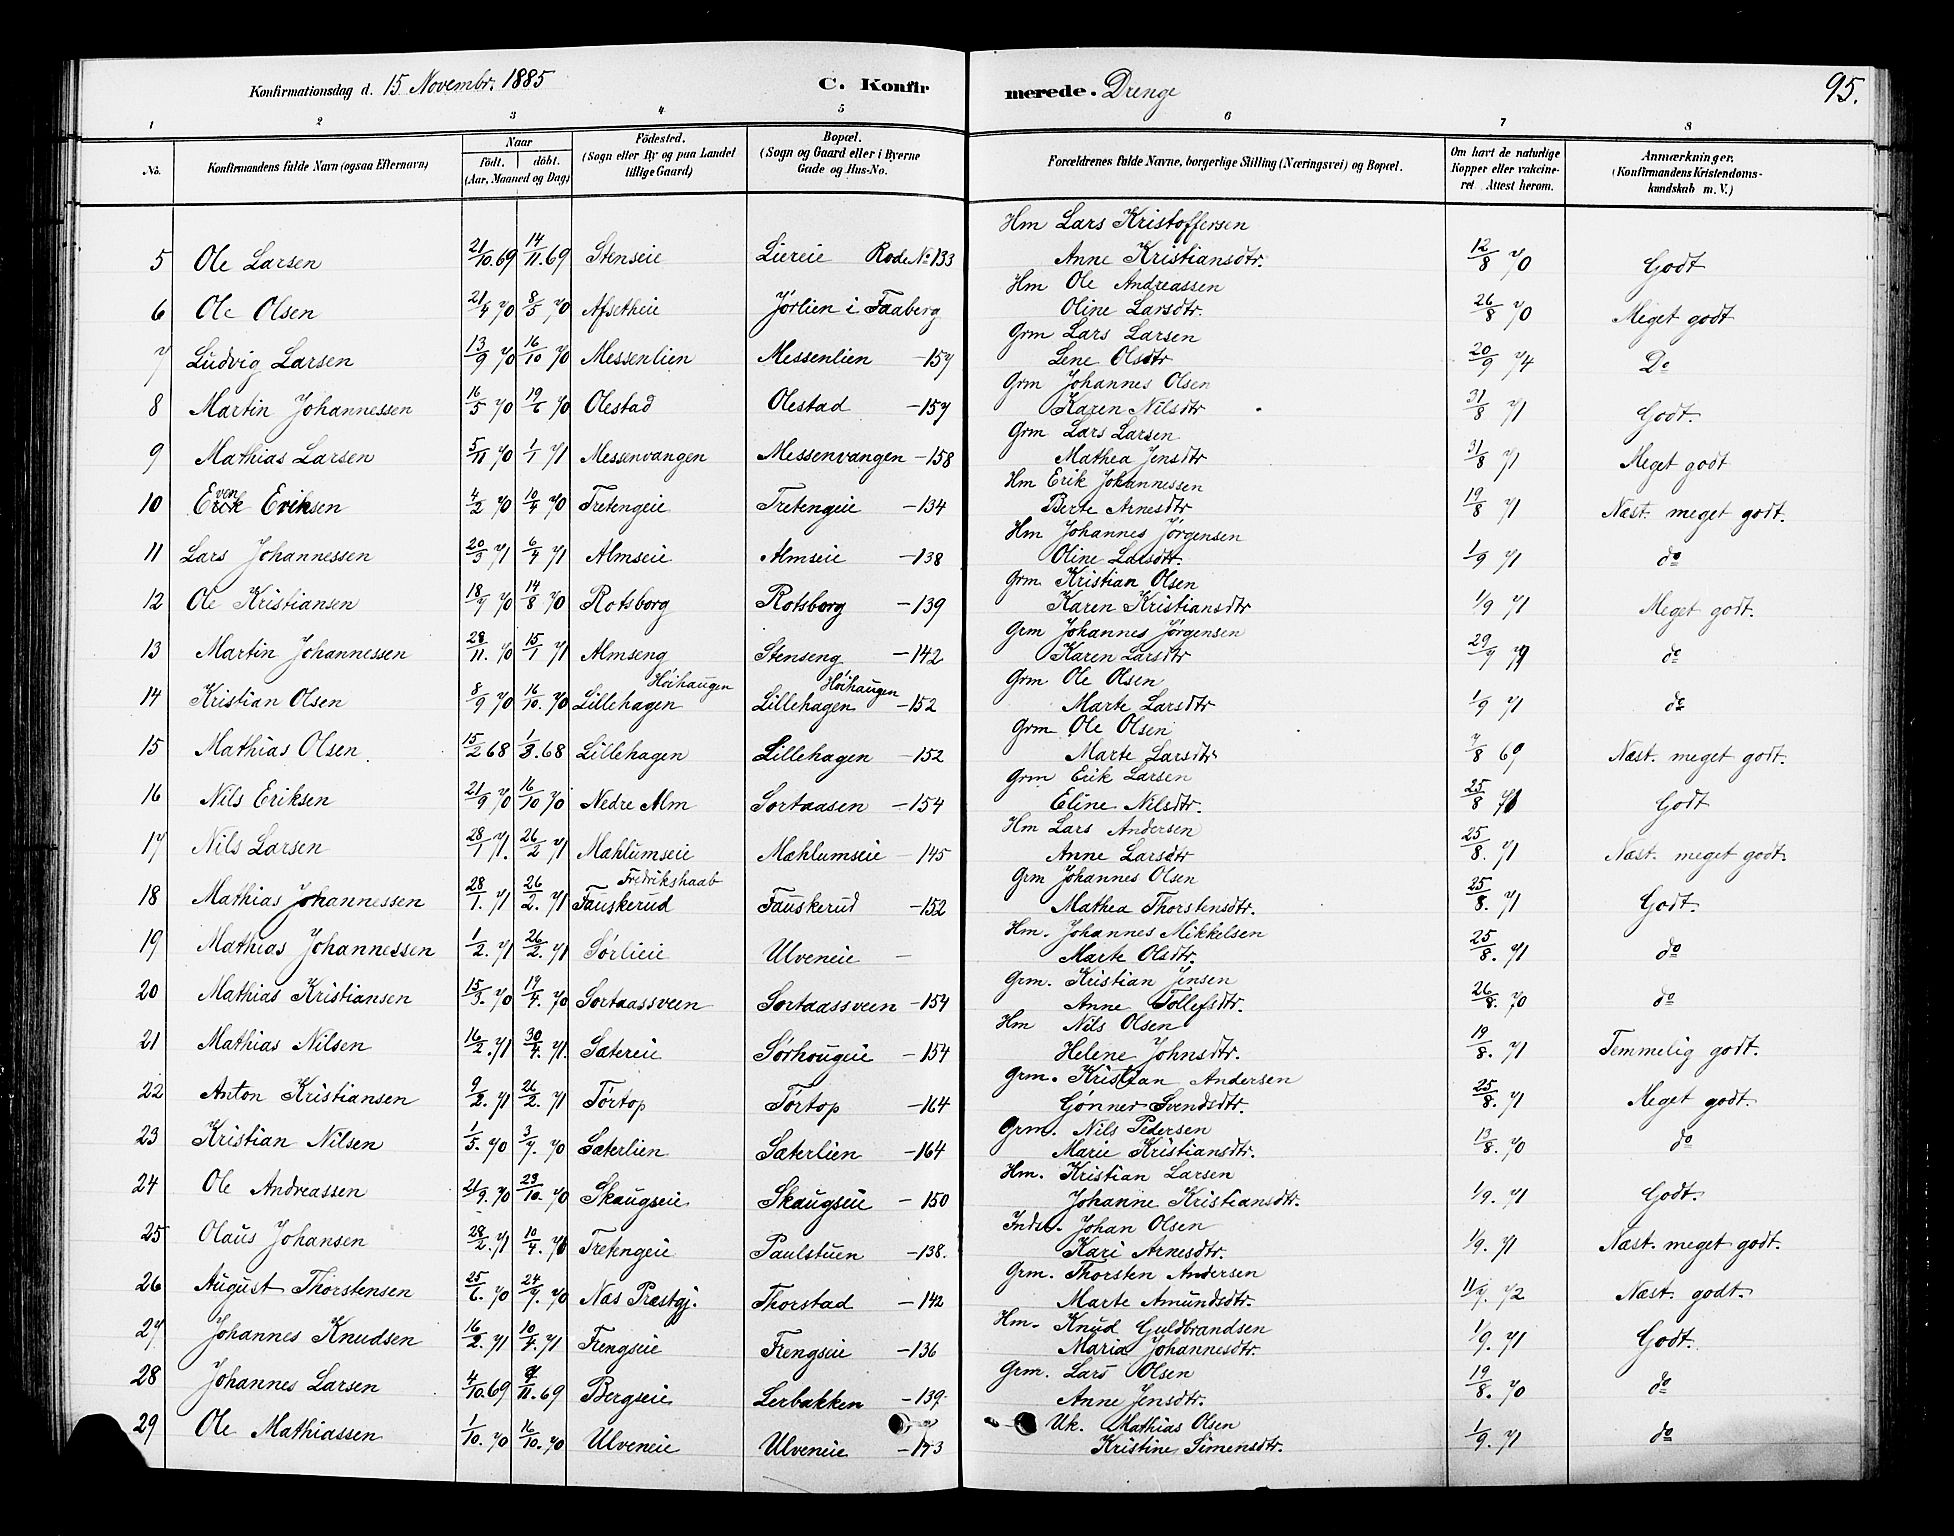 Konfirmationsdag d. 15 Novembr. 1885 C. Konfirmerede. Drenge 95.
1 2 3 4 5 6 7 8
No. Konfirmandens fulde Navn (ogsaa Efternavn) Naar födt. döbt. (Aar, Maaned og Dag) Födested. (Sogn eller By og paa Landet tillige Gaard) Bopæl. (Sogn og Gaard eller i Byerne Gade og Hus-No. Forældrenes fulde Navne, borgerlige Stilling (Næringsvei) og Bopæl. Om havt de naturlige Kopper eller vakcineret Attest herom. Anmærkninger. (Konfirmandens Kristendomskundskab m. V.)
Hm Lars Kristoffersen
5 Ole Larsen 21/10.69 14/11.69 Stenseie Liereie Rode No 133 Anne Kristiansdtr. 12/8 70 Godt
Hm Ole Andreassen
6 Ole Olsen 21/4 70 8/5 70 Afsetheie Jørlien i Faaberg Oline Larsdtr. 26/8 70 Meget godt
Grm Lars Larsen
7 Ludvig Larsen 13/9 70 16/10 70 Messenlien Messenlien -157 Lene Olsdtr 20/9 74 Do
Grm Johannes Olsen
8 Martin Johannessen 16/5 70 19/6 70 Olestad Olestad -157 Karen Nilsdtr 31/8 71 Godt.
Grm Lars Larsen
9 Mathias Larsen 5/11 70 1/1 71 Messenvangen Messenvangen -158 Mathea Jensdtr 31/8 71 Meget godt
Hm Erik Johannessen
10 Even Eriksen 4/2 70 10/4 70 Tretengeie Tretengeie -134 Berte Arnesdtr 19/8 71 Næst. meget godt.
Hm Johannes Jørgensen
11 Lars Johannessen 20/3 71 6/4 71 Almseie Almseie -138 Oline Larsdtr. 1/9 71 do
Grm Kristian Olsen
12 Ole Kristiansen 18/7 70 14/8 70 Rotsborg Rotsborg -139 Karen Kristiansdtr 1/9 71 Meget godt.
Grm Johannes Jørgensen
13 Martin Johannessen 28/11. 70 15/1 71 Almseng Stenseng -142 Karen Larsdtr 29/7 79 do
Høihaugen Høihaugen Grm Ole Olsen
14 Kristian Olsen 8/9 70 16/10. 70 Lillehagen Lillehagen -152 Marte Larsdtr 1/9 71 do
Grm Ole Olsen
15 Mathias Olsen. 15/2 68 1/3.68 Lillehagen Lillehagen -152 Marte Larsdtr 7/8 69 Næst. meget godt.
Grm Erik Larsen
16 Nils Eriksen 21/9 70 16/10 70 Nedre Alm Sortaasen -154 Eline Nilsdtr. 25/8 71 Godt
Hm Lars Andersen
17 Nils Larsen 28/1 71. 26/2 71 Mæhlumseie Mæhlumseie -145 Anne Larsdtr 25/8. 71 Næst. meget godt.
Fredrikshaab Grm Johannes Olsen
18 Mathias Johannessen 28/1. 71 26/2. 71 Fauskerud Fauskerud -152 Mathea Thorstensdtr. 25/8. 71 Godt.
Hm. Johannes Mikkelsen
19 Mathias Johannessen 1/2. 71 26/2. 71 Sørlieie Ulveneie - Marte Olsdtr. 25/8. 71 do
Grm. Kristian Jensen
20 Mathias Kristiansen 15/3. 70 17/4. 70 Sortaassveen Sortaassveen -154 Anne Tollefsdtr. 26/8. 70 do
Hm Nils Olsen
21 Mathias Nilsen 16/2. 71 30/4. 71. Sætereie Sørhougeie -154 Helene Johnsdtr. 19/8. 71 Temmelig godt.
Grm. Kristian Andersen
22 Anton Kristiansen 9/2. 71 26/2. 71 Tørtop Tørtop -164 Gønner Svendsdtr. 25/8. 71 Meget godt.
Grm. Nils Pedersen
23 Kristian Nilsen 1/5. 70 3/7. 70 Sæterlien Sæterlien -164 Marie Kristiansdtr. 13/8. 70 do
Hm. Kristian Larsen
24 Ole Andreassen 21/9. 70 23/10. 70 Skaugseie Skaugseie -150 Johanne Kristiansdtr. 1/9. 71 Godt.
Inds. Johan Olsen
25 Olaus Johansen 28/2. 71 10/4. 71 Tretengeie Paulstuen -138. Kari Arnesdtr. 1/9. 71 Næst. meget godt.
Grm. Thorsten Andersen
26 August Thorstensen 25/6. 70 24/7. 70 Næs Præstgj. Thorstad -142 Marte Amundsdtr. 11/9. 72 Næst. godt.
Hm. Knud Guldbrandsen
27 Johannes Knudsen 16/2. 71 10/4. 71 Frengseie Frengseie -136 Maria Johannesdtr. 1/9. 71 Godt.
Grm. Lars Olsen
28 Johannes Larsen 4/10.69 7/11.69 Bergseie Lerbakken -139. Anne Jensdtr. 19/8. 70 do
Uk. Mathias Olsen
29 Ole Mathiassen 1/10. 70 16/10. 70 Ulveneie Ulveneie -173 Kristine Simensdtr. 1/9. 71 do